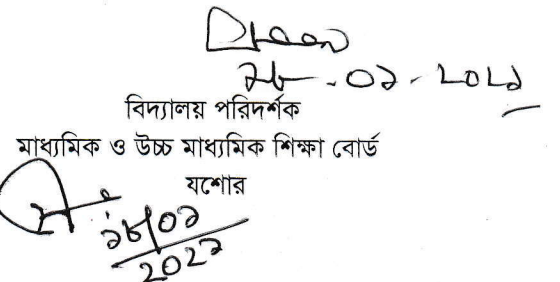 ২৮-০১-২০২১
বিদ্যালয় পরিদর্শক
মাধ্যমিক ও উচ্চ মাধ্যমিক শিক্ষা বোর্ড
যশোর